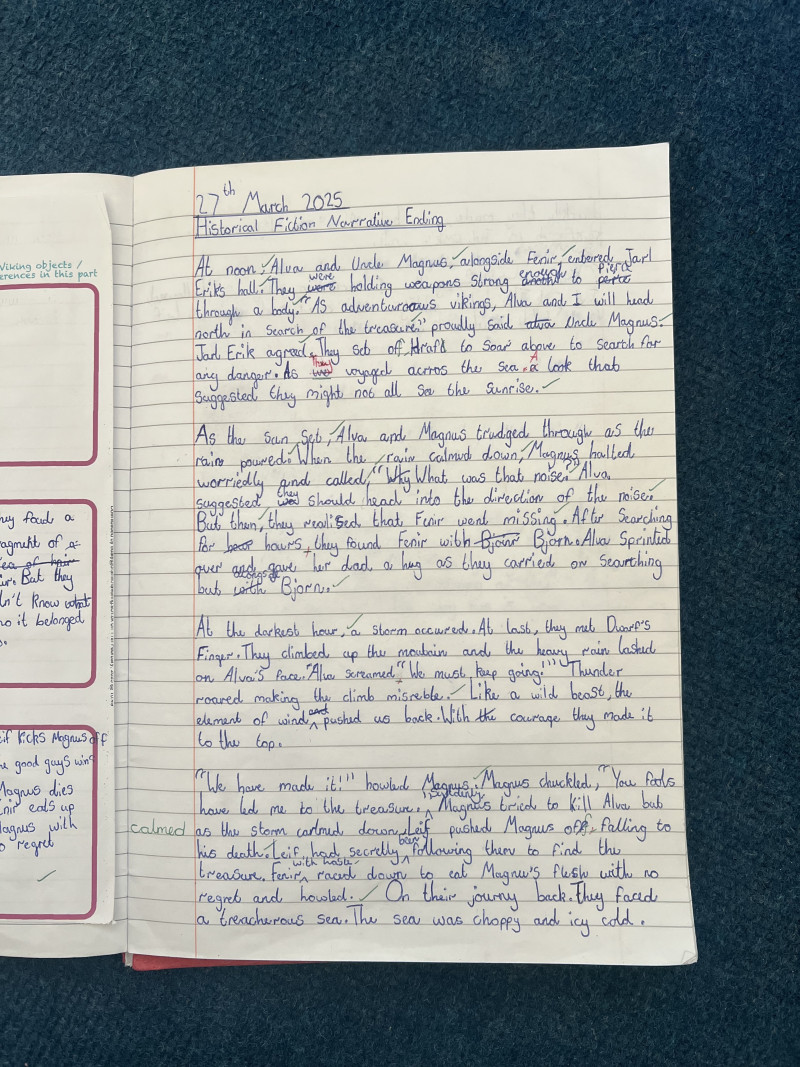 Viking objects /
erences in this part
ey foud a
agment of a
ea of hair
ir. But they
n't know what
o it belonged
eif kicks Magnus off
e good guys win
Magnus dies
nir eats up
Magnus with
o regret
27th March 2025
Historical Fiction Narrative Ending
At noon, Alva and Uncle Magnus, alongside Fenir, entered Jarl
Erik's hall. They were were holding weapons strong enough to pierce
through a body. "As adventurous vikings, Alva and I will head
north in search of the treasure." proudly said alva Uncle Magnus.
Jarl Erik agred. They set off, Hrafd to soar above to search for
any danger. As They we voyaged acrros the sea. A a look that
suggested they might not all see the sunrise.
As the sun set, Alva and Magnus trudged through as the
rain poured. When the rain calmed down, Magnus halted
worriedly and called, "Why What was that noise?" Alva
suggested they we should head into the direction of the noise.
But then, they realised that Fenir went missing. After searching
for hours, they found Fenir with Bjour Bjorn. Alva sprinted
over and gave her dad a hug as they carried on searching
but alongside with Bjorn.
At the darkest hour, a storm occured. At last, they met Dwarf's
Finger. They climbed up the moutain and the heavy rain lashed
on Alva's face. "Alva screamed "We must keep going!"" Thunder
roared making the climb misreble. Like a wild beast, the
element of wind and pushed us back. With the courage they made it
to the top.
"We have made it!"" howled Magnus. Magnus chuckled, "You fools
have led me to the treasure. Suddenly Magnus tried to kill Alva but
calmed
as the storm carlmed down, Leif pushed Magnus off, falling to
his death. Leif had secretly been following them to find the
treasure. Fenir with haste raced down to eat Magnu's flesh with no
regret and howled. On their journy back. They faced
a treacherous sea. The sea was choppy and icy cold.